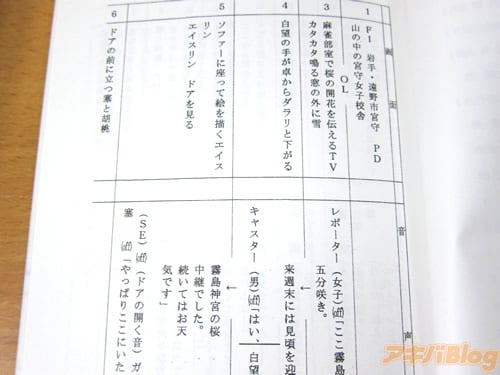 画面
1
FI 岩手・遠野市宮守 PD
山の中の宮守女子校舎
OL
3
麻雀部室で桜の開花を伝えるTV
カタカタ鳴る窓の外に雪
4
白望の手が卓からダラリと下がる
5
ソファーに座って絵を描くエイス
リン
エイスリン ドアを見る
6
ドアの前に立つ塞と胡桃
音声
レポーター(女子)「ここ霧島
五分咲き。
来週末には見頃を迎
↓
キャスター(男)「はい、白望
↓
霧島神宮の桜
中継でした。
続いてはお天
気です」
(SE)(ドアの開く音)ガ
塞 「やっぱりここにいた
アキバBlog